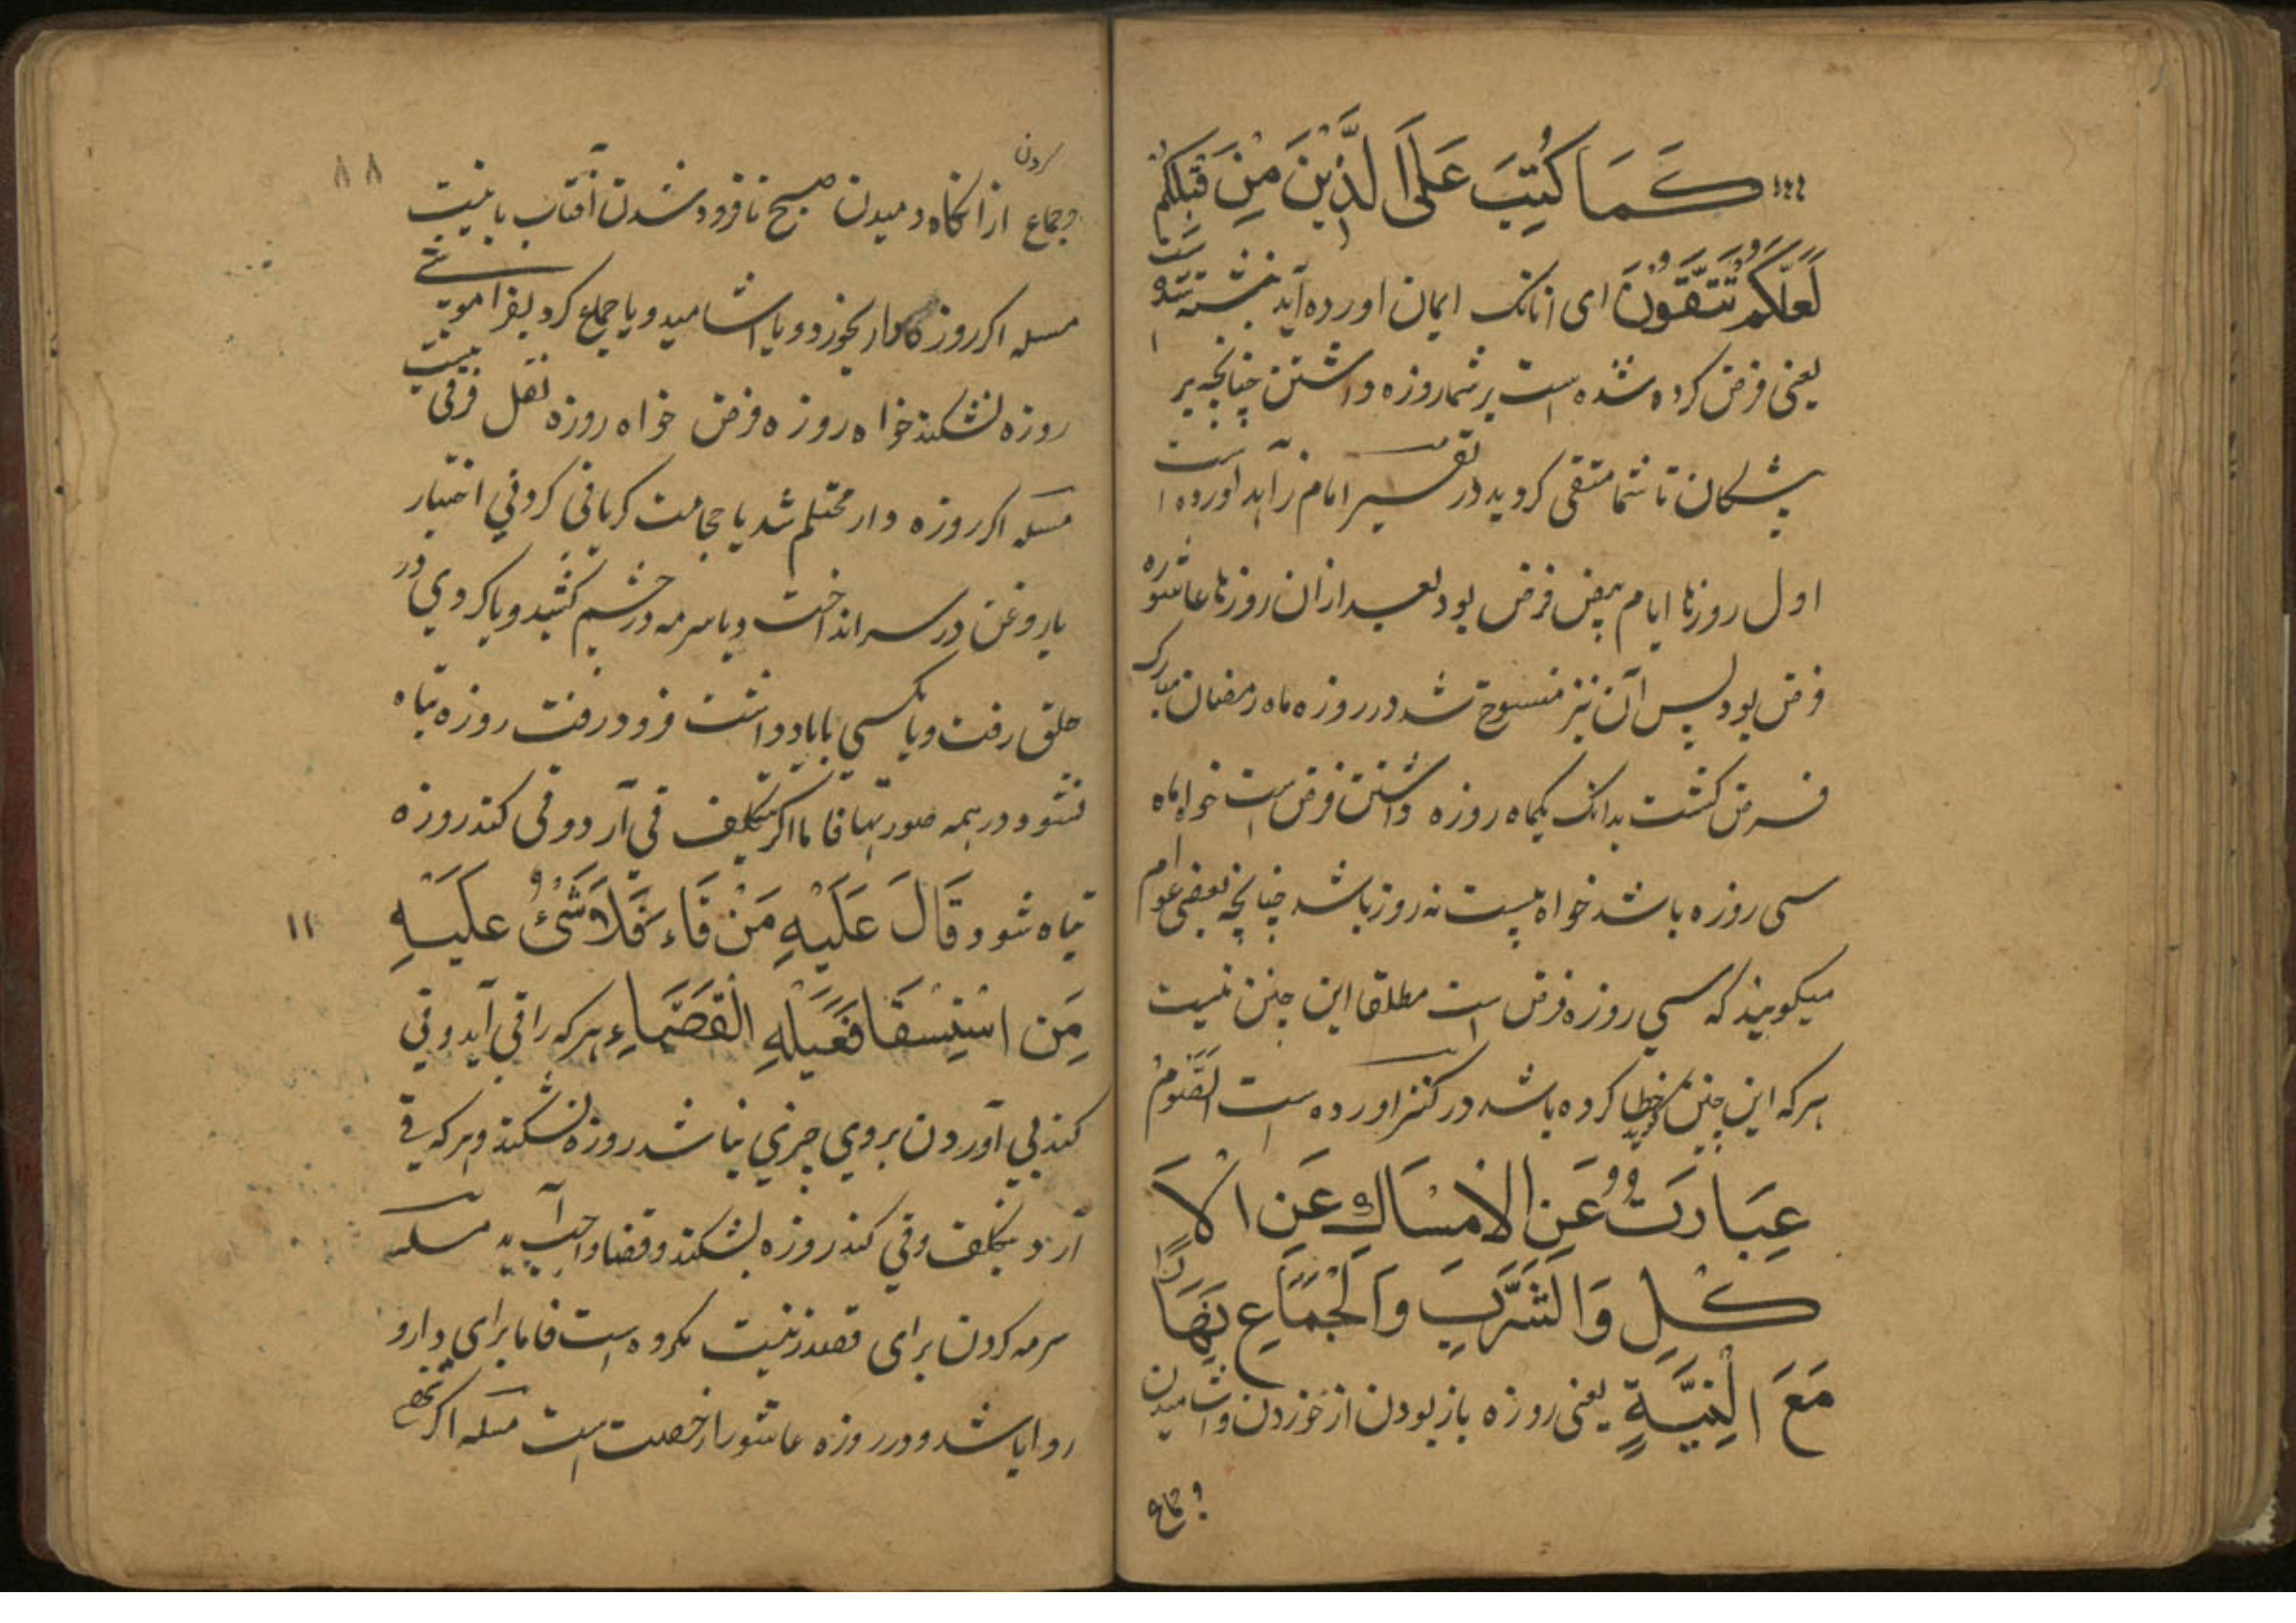 كَمَا كُتِبَ عَلَى الَّذِيْنَ مِنْ قَبْلِكُمْ
لَعَلَّكُمْ تَتَّقُوْنَ ای انانک ایمان اورده اید نبشته شده است
یعنی فرض کرده شده است بر شما روزه داشتن چنانچه بر
پیشکان تا شما متقی کردید در تفسیر امام زاهد اورده است
اول روزها ایام بیض فرض بود بعد ازان روزها عاشوره
فرض بود پس آن نیز منسوخ شد در روزه ماه رمضان مبارک
فرض کشت بدانک یکماه روزه داشتن فرض است خواه ماه
سی روزه باشد خواه بیست نه روز باشد چنانچه بعضی عوام
میکویند که سی روزه فرض است مطلقا این چنین نیست
هر که این چنین کوید خطا کرده باشد در کنز اورده است الصَّوْمُ
عِبَارَتٌ عَنِ الاِمْسَاكِ عَنِ الاَ
كْلِ وَالشَّرْبِ وَالْجِمَاعِ نَهَارًا
مَعَ الْنِيَّةِ یعنی روزه باز بودن از خوردن واشامیدن
و جماع
۸۸
کردن
وجماع از انکاه دمیدن صبح تا فرود شدن آفتاب با نیت
مسله اکر روزه دار بخوردو یا اشامید و یا جماع کرد بفراموشی
روزه نشکند خواه روزه فرض خواه روزه نفل فرقی نیست
مسله اکر روزه دار محتلم شد یا حجامت کر یا قی کرد بی اختیار
یا روغن در سر انداخت و یا سرمه در چشم کشید و یا کردی در
حلق رفت و یا مکسی یا باد داشت فرود رفت روزه تباه
نشود در همه صورتها فاما اکر بتکلیف قی آرد و قی کند روزه
تباه شود قَالَ عَلَيْهِ مَنْ قَاءَ فَلَا شَئُ عَلَيْهِ
۱۱
مَن اسْتِسْقَا فَعَلَيْهِ الْقَضَاءِ هر که را قی آید و قی
کند بی آوردن بروی چیزی نباشد روزه نشکند و هر که قی
آرد بتکلف و قی کند روزه بشکند و قضا واجب آید مسله
سرمه کردن برای قصد زینت مکروه است فاما برای دارو
روا باشد و در روزه عاشورا رخصت است مسله اکر